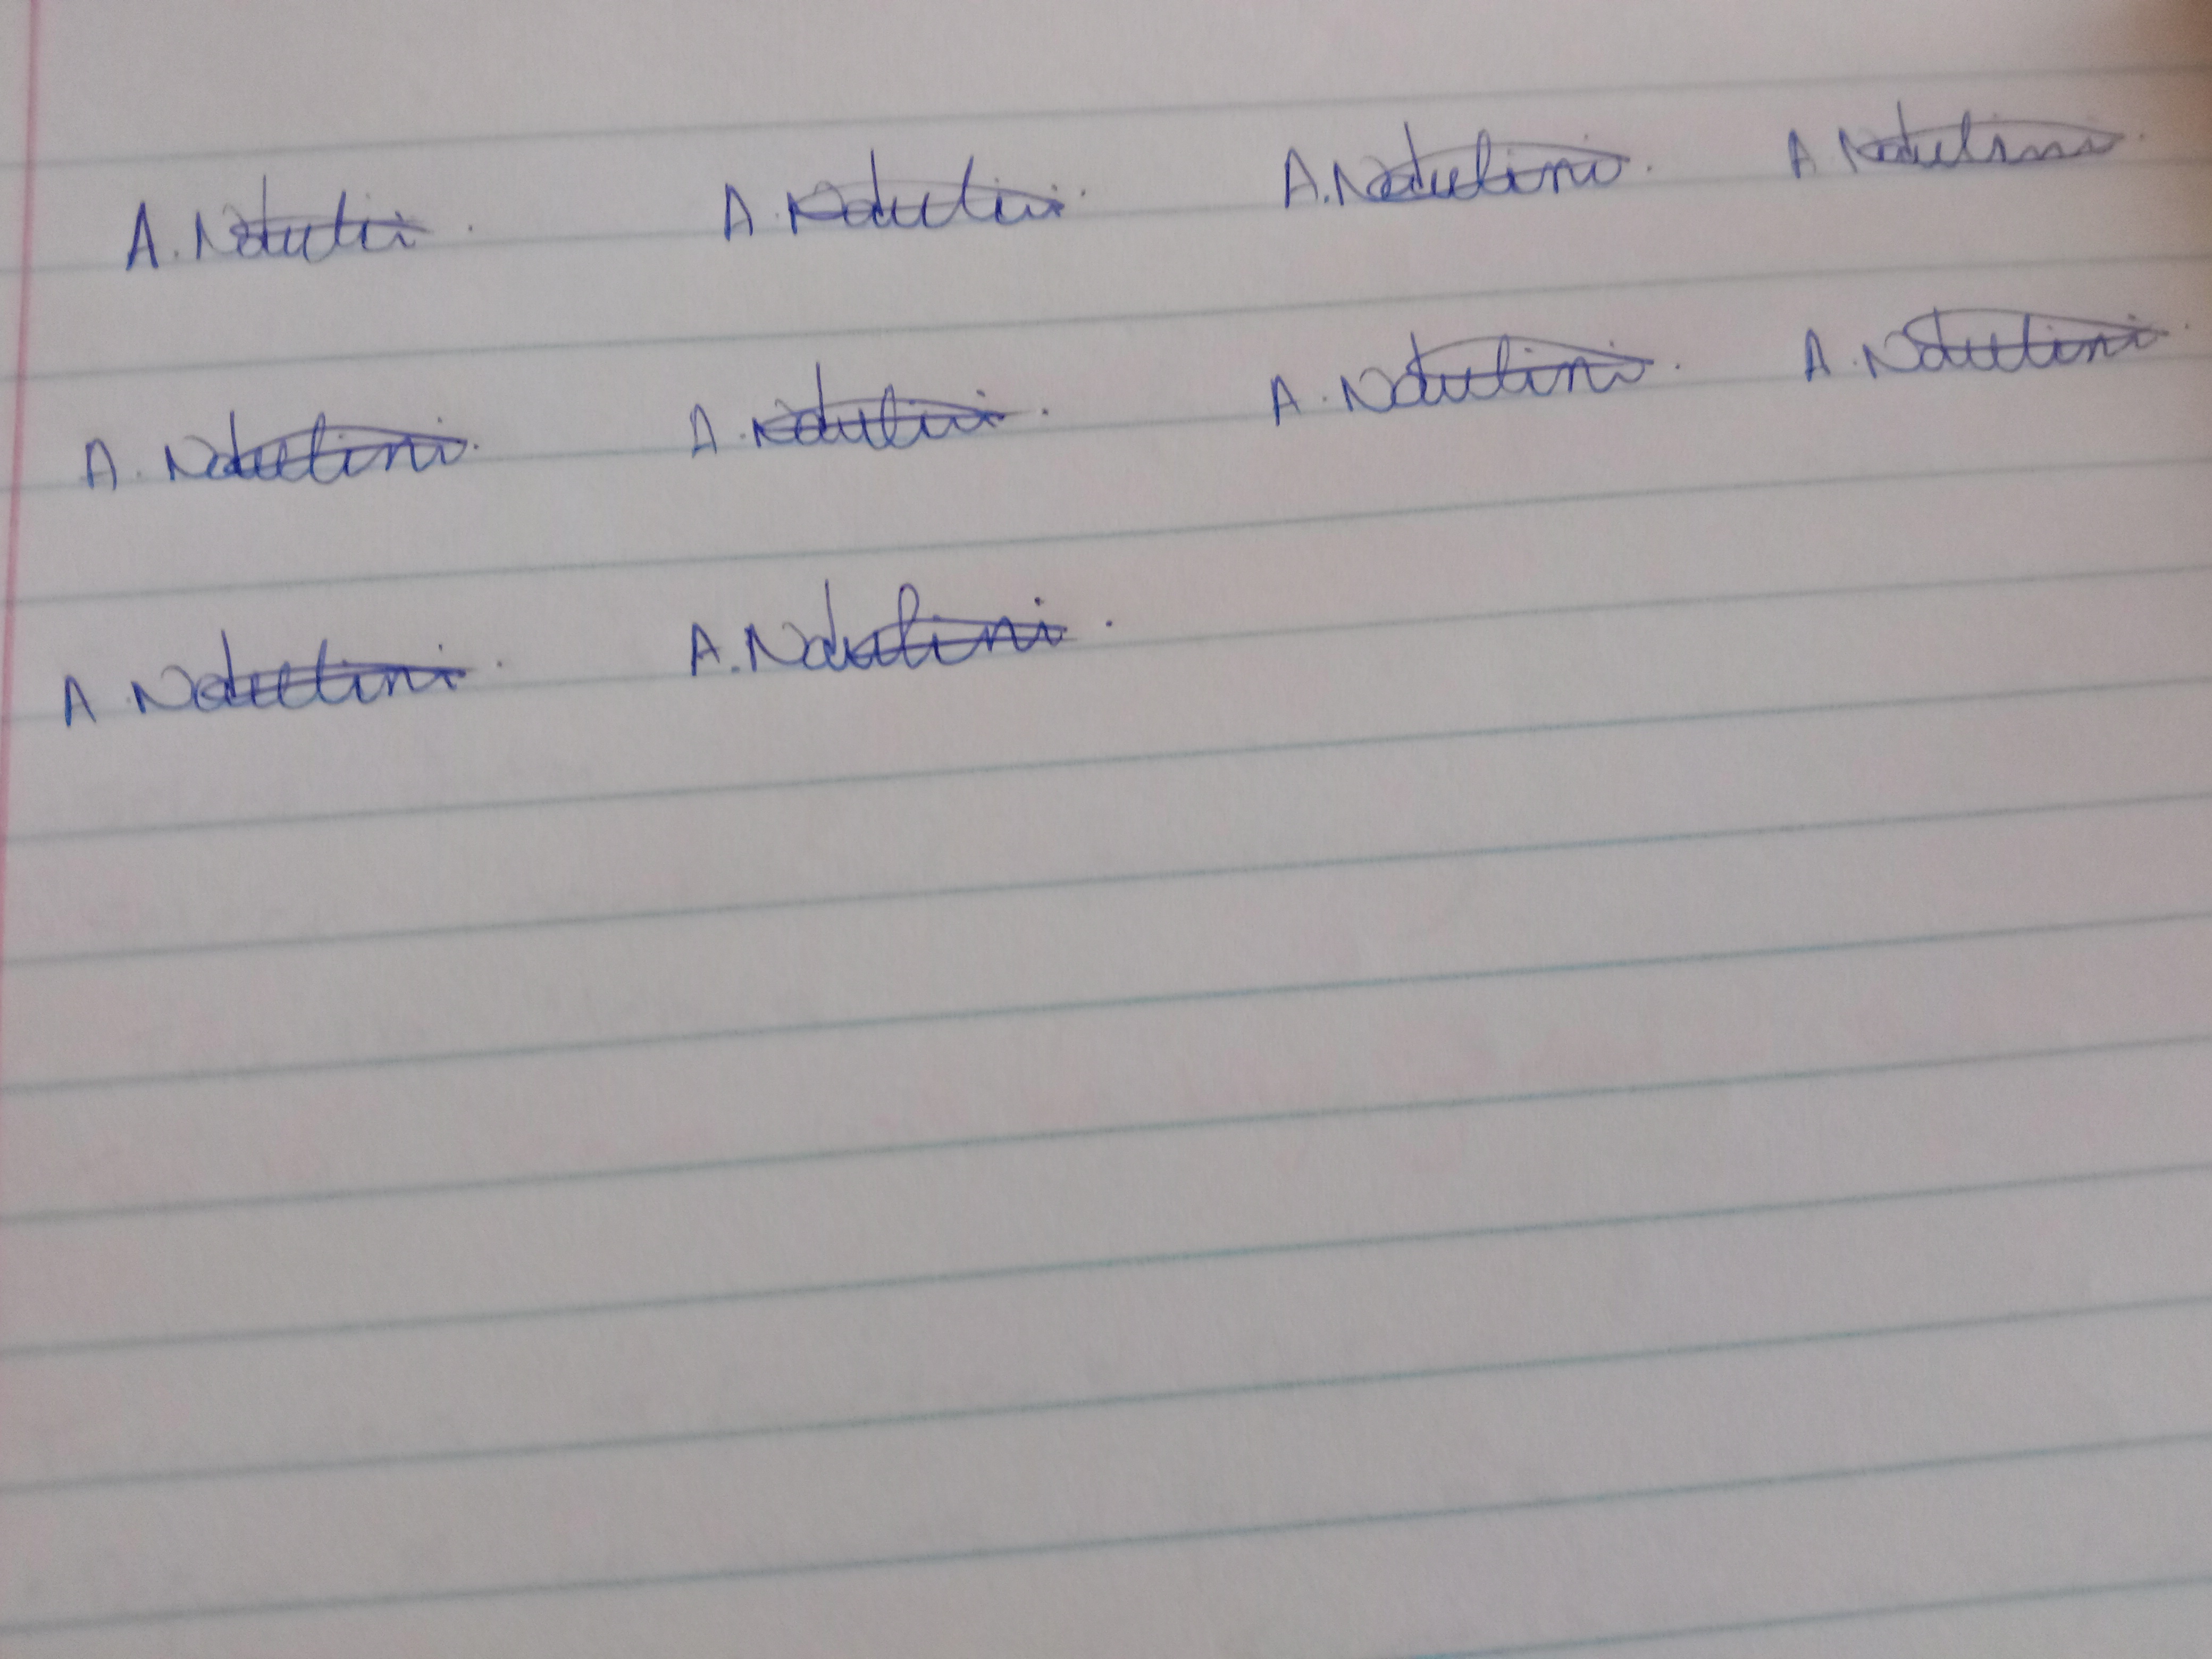 A. Ndulini. A. Ndulini. A. Ndulini. A. Ndulini.
A. Ndulini. A. Ndulini. A. Ndulini. A. Ndulini.
A. Ndulini. A. Ndulini.